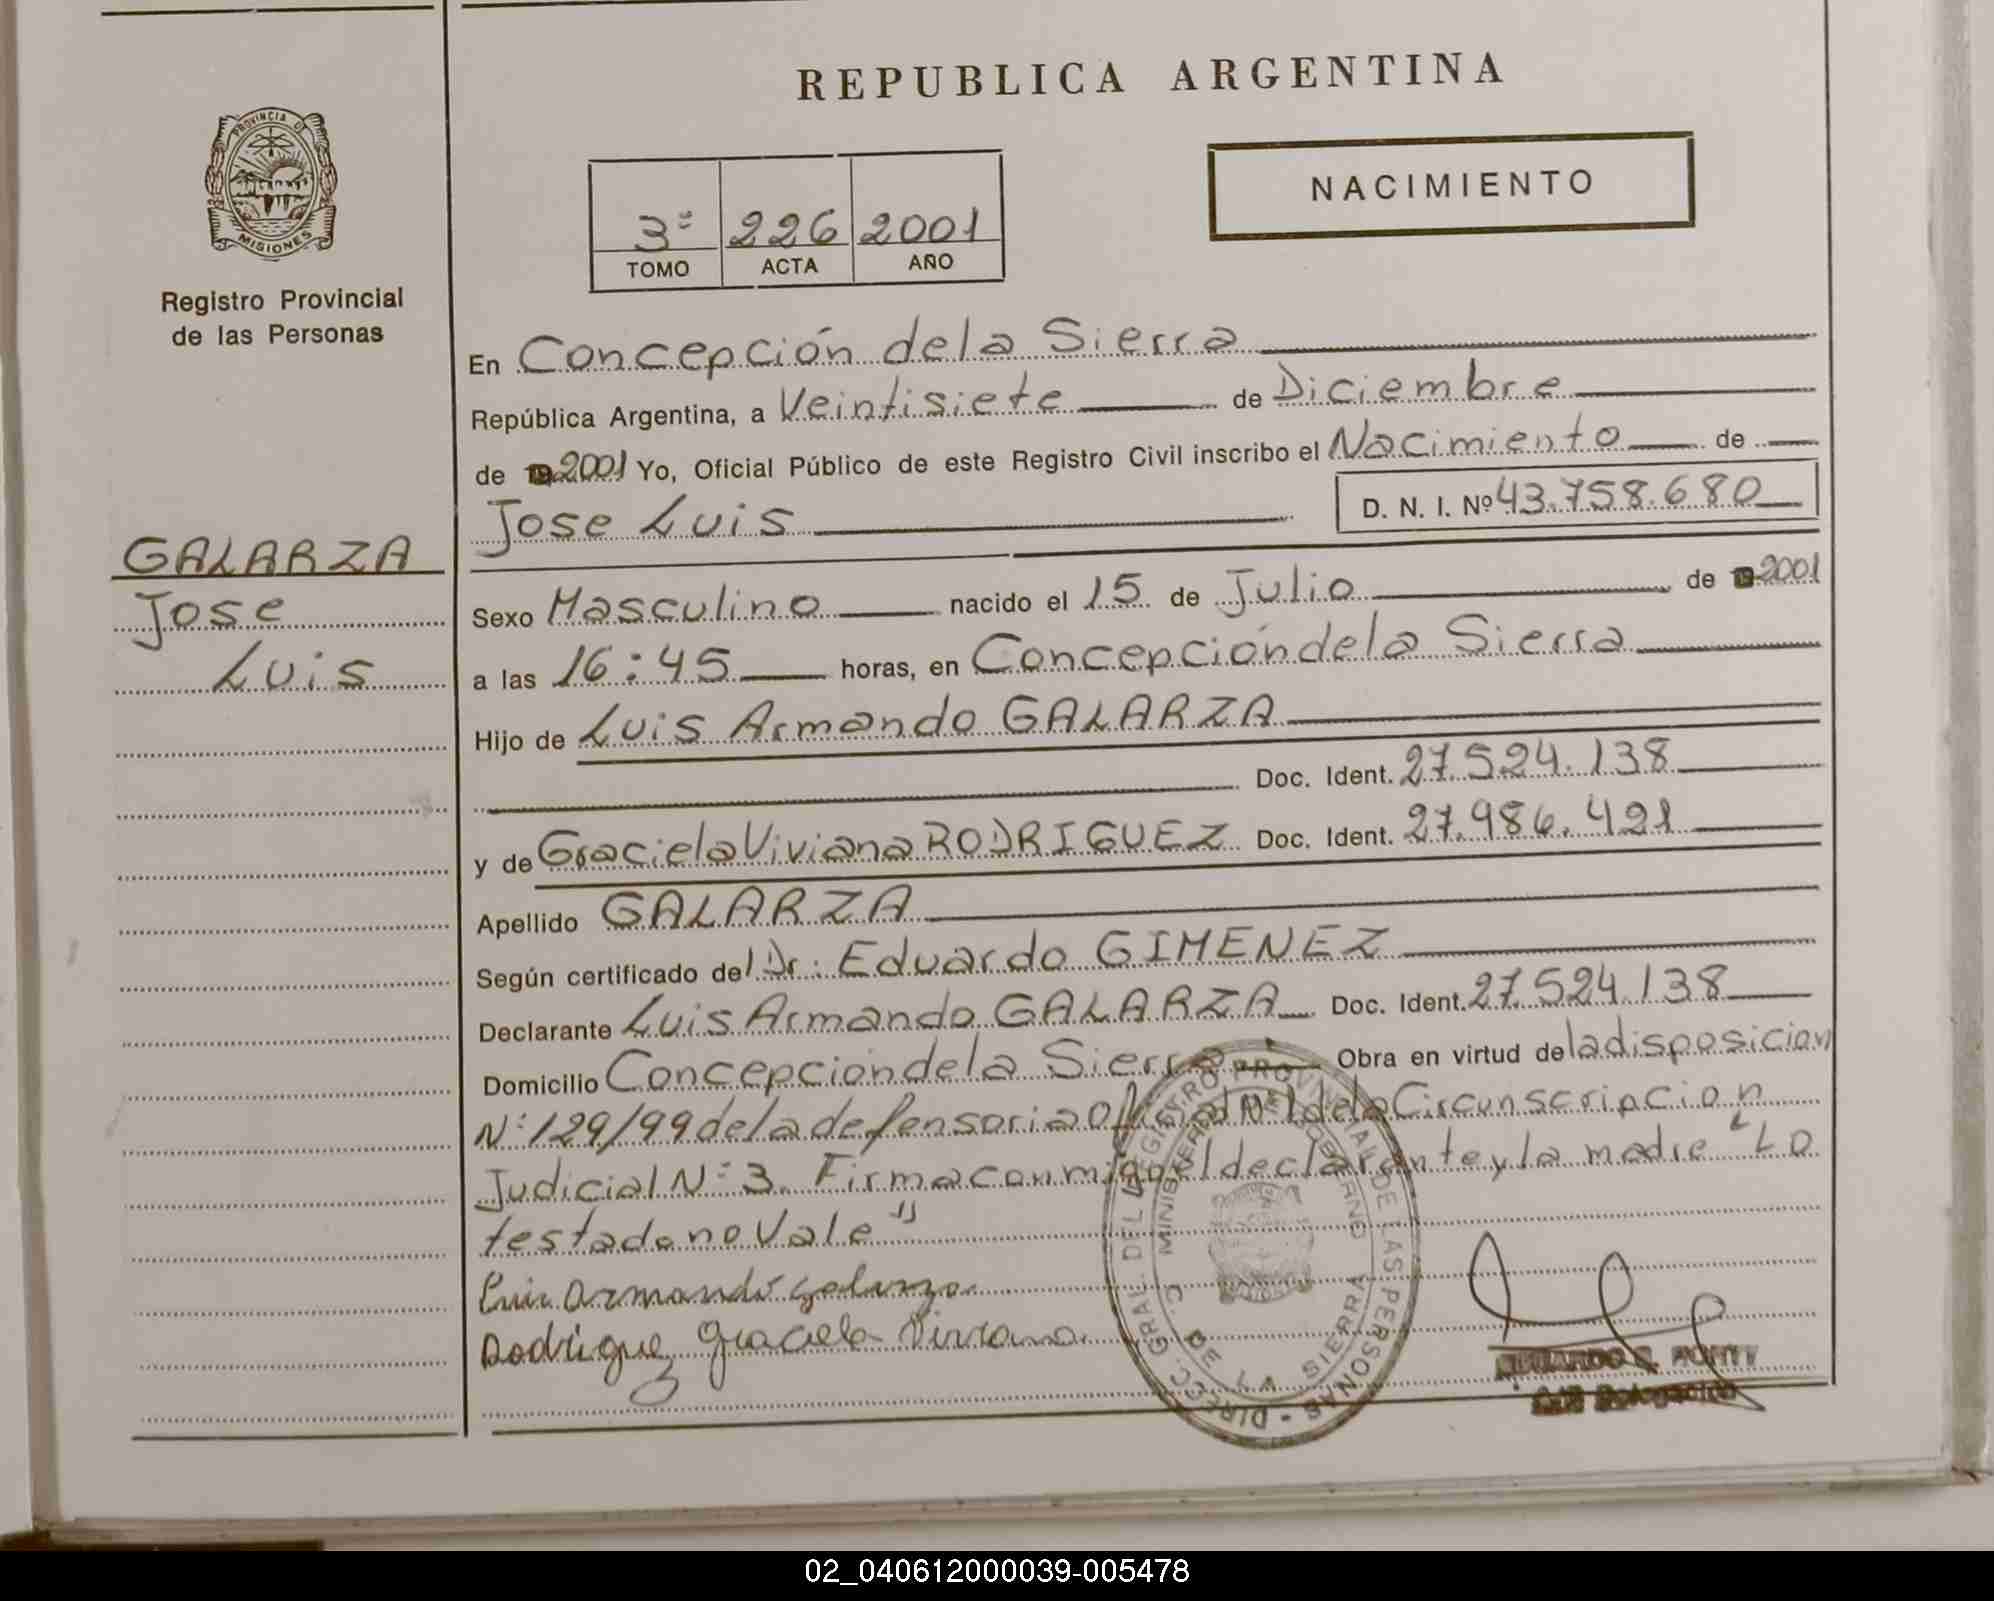 REPUBLICA ARGENTINA
PROVINCIA DE
MISIONES
Registro Provincial
de las Personas
NACIMIENTO
3º 226 2001
TOMO ACTA AÑO
En Concepción de la Sierra
República Argentina, a Veintisiete de Diciembre
de 2001 Yo, Oficial Público de este Registro Civil inscribo el Nacimiento de
Jose Luis D. N. I. Nº 43.758.680
GALARZA
Jose
Luis
Sexo Masculino nacido el 15 de Julio de 2001
a las 16:45 horas, en Concepción de la Sierra
Hijo de Luis Armando GALARZA
Doc. Ident. 27.524.138
y de Graciela Viviana RODRIGUEZ Doc. Ident. 27.986.421
Apellido GALARZA
Según certificado del Dr: Eduardo GIMENEZ
Declarante Luis Armando GALARZA Doc. Ident. 27.524.138
Domicilio Concepción de la Sierra Obra en virtud de la disposicion
Nº 129/99 de la defensoria Oficial Nº 1 de la Circunscripcion
Judicial Nº 3. Firma conmigo el declarante y la madre "LO
testado no Vale"
Luis Armando Galarza
Rodriguez Graciela Viviana
DIREC. GRAL. DEL REGISTRO PROVINCIAL DE LAS PERSONAS
MINISTERIO DE GOBIERNO
C. DE LA SIERRA
02_040612000039-005478